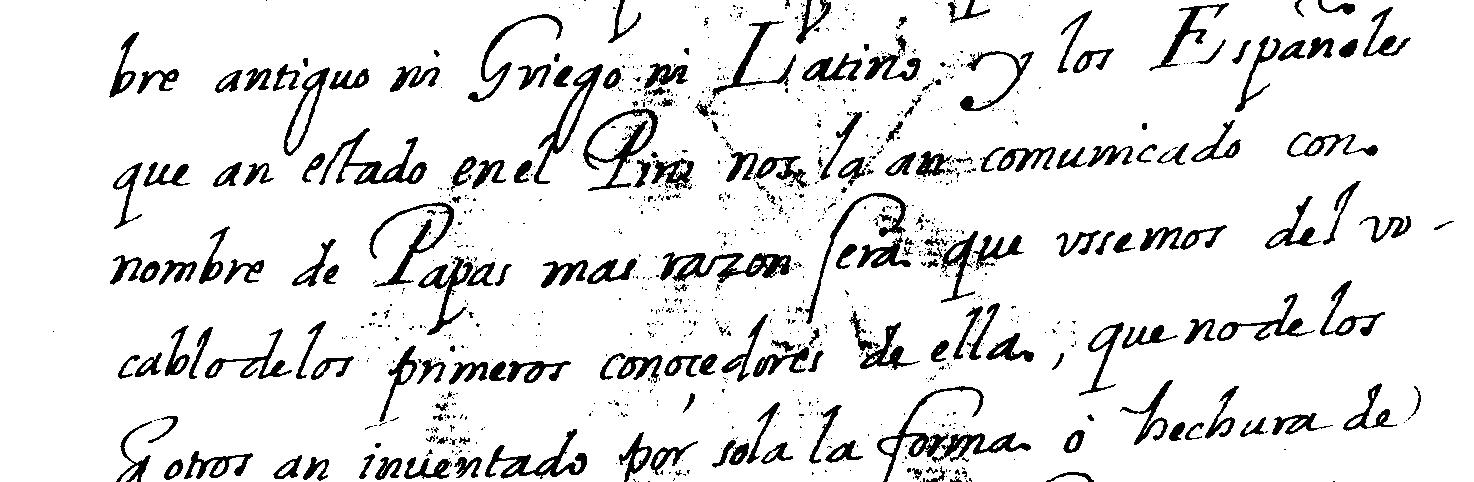 bre antiguo ni Griego ni Latino y los Españoles
que an estado en el Piru nos la an comunicado con
nombre de Papas mas razon sera que vssemos del vo-
cablo de los primeros conoçedores de ella, que no de los
q otros an inventado por sola la forma ó hechura de